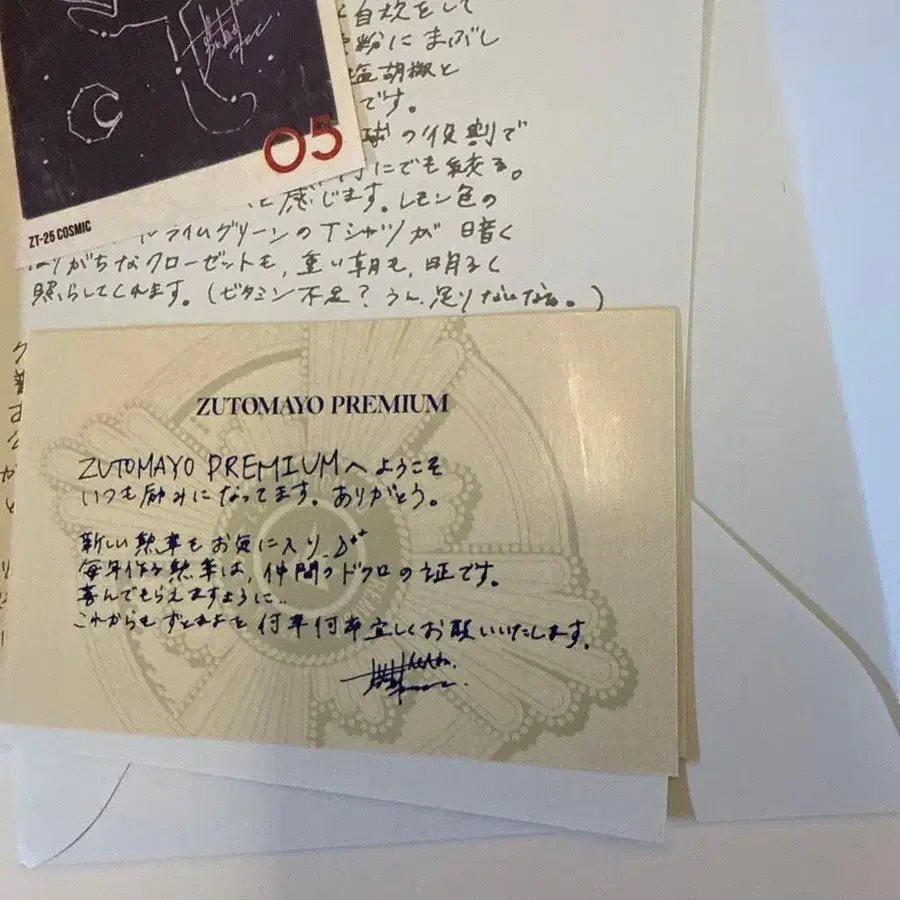 05
ZT-25 COSMIC
自炊をして
粉にまぶし
塩胡椒と
です。
球の役割で
にでも絞る。
と感じます。レモン色の
ライムグリーンのTシャツが 暗く
なりがちなクローゼットも、重い朝も、明るく
照らしてくれます。(ビタミン不足? うん、足りないなぁ。)
ZUTOMAYO PREMIUM
ZUTOMAYO PREMIUMへようこそ
いつも励みになってます。ありがとう。
新しい勲章もお気に入り
毎年作る勲章は、仲間のドクロの証です。
喜んでもらえますように..
これからもずとまよを 何卒何卒宜しくお願いいたします。